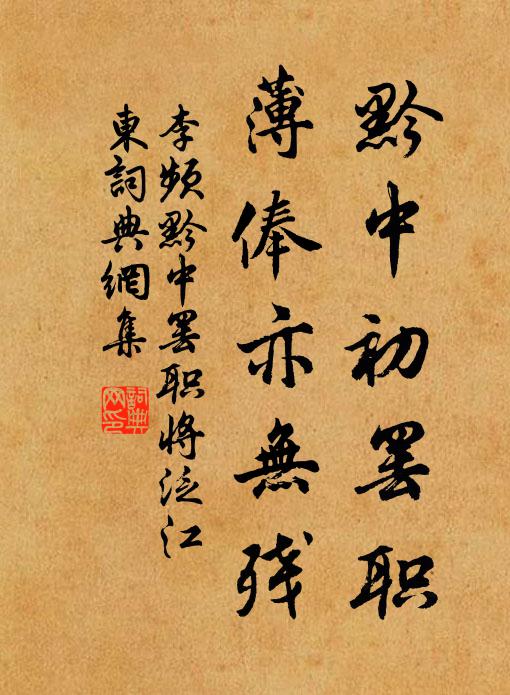 黔中初罢职
薄俸亦無残
李频黔中罢职将泛江
東詞典網集
詞典
网印